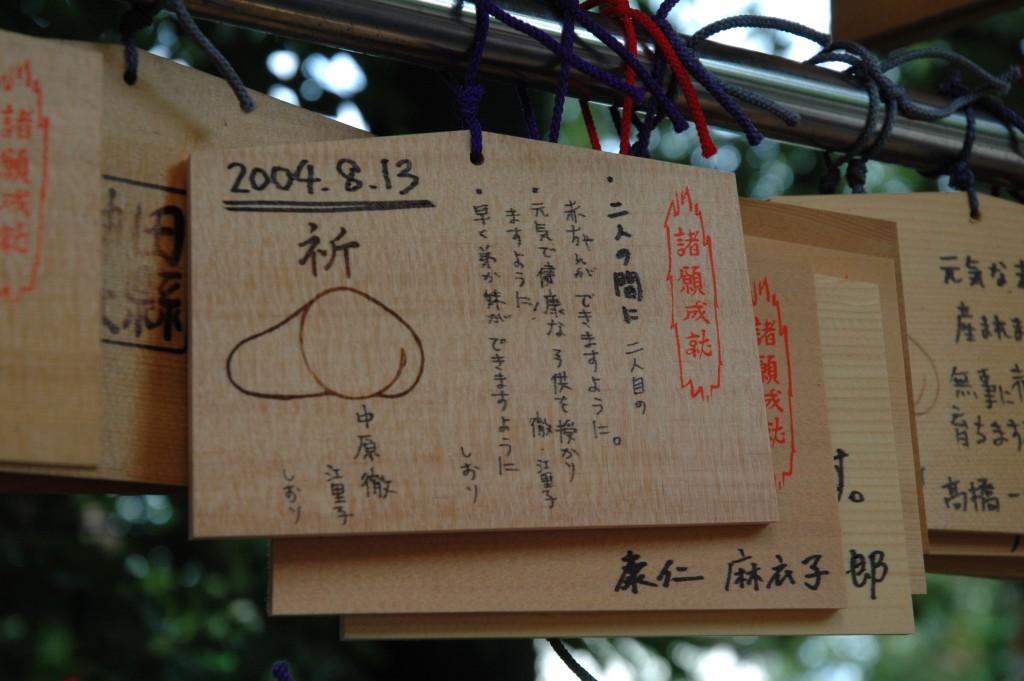 諸願成就
2004.8.13
祈
諸願成就
・二人の間に 二人目の
赤ちゃんができますように。
・元気で健康な子供を授かり
ますように! 徹・江里子
・早く弟か妹ができますように
しおり
中原徹
江里子
しおり
諸願成就
す。
康仁 麻衣子 郎
元気な
産まれま
無事に
育ちます
高橋一